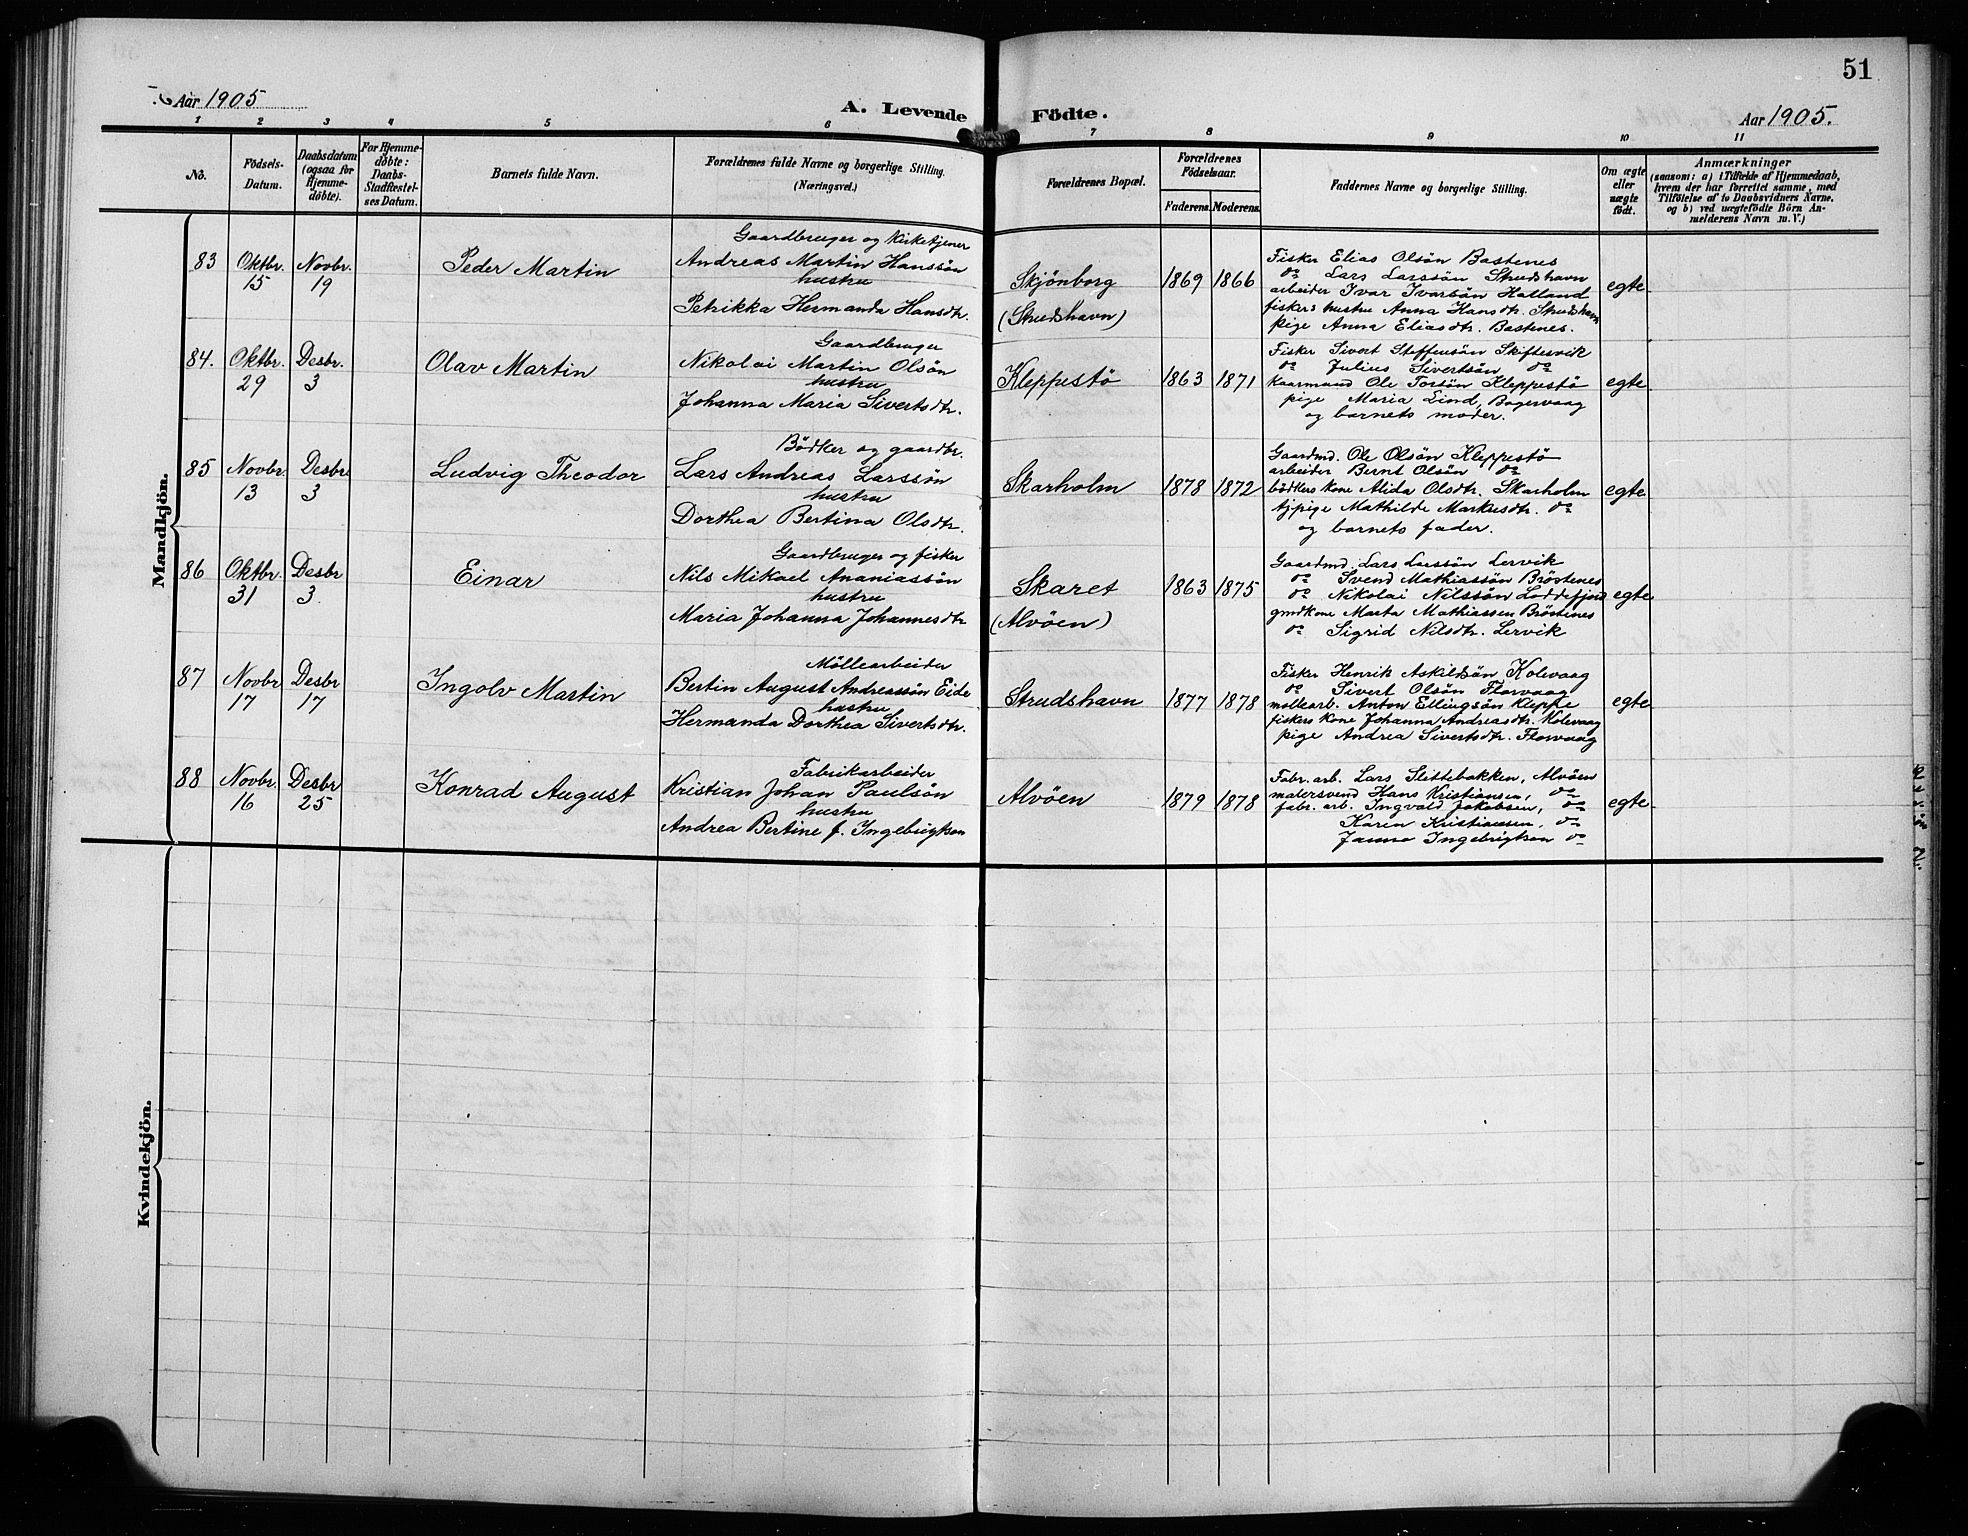 51
Aar 1905
A. Levende Födte.
Aar 1905.
1 2 3 4 5 6 7 8 9 10 11
No.
Födsels-
Datum.
Daabsdatum
(ogsaa for
Hjemme-
døbte).
For Hjemme-
døbte:
Daabs-
Stadfæstel-
ses Datum.
Barnets fulde Navn.
Forældrenes fulde Navne og borgerlige Stilling.
(Næringsvei.)
Forældrenes Bopæl.
Forældrenes
Födselsaar.
Faderens. Moderens.
Faddernes Navne og borgerlige Stilling.
Om ægte
eller
uægte
födt.
Anmærkninger
(saasom: a) i Tilfælde af Hjemmedaab,
hvem der har forrettet samme, med
Tilföielse af to Daabsvidners Navne,
og b) ved uægtefödte Börn An-
melderens Navn m. V.)
Mandkjön.
83
Oktbr.
15
Novbr.
19
Peder Martin
Gaardbruger og kirketjener
Andreas Martin Hanssön
hustru
Petrikka Hermanda Hansdtr.
Skjönborg
(Strudshavn)
1869 1866
Fisker Elias Olsön Bastenes
do Lars Larssön Strudshavn
arbeider Ivar Ivarsön Halland
fiskers hustru Anna Hansdtr. Strudshavn
pige Anna Eliasdtr. Bastenes.
egte
84.
Oktbr.
29
Desbr.
3
Olav Martin
Gaardbruger
Nikolai Martin Olsön
hustru
Johanna Maria Sivertsdtr.
Kleppestö
1863 1871
Fisker Sivert Steffensön Skiftesvik
do Julius Sivertsön do
Kaarmand Ole Torsön Kleppestö
pige Maria Lind, Bogervaag
og barnets moder.
egte
85
Novbr.
13
Desbr
3
Ludvig Theodor
Bödker og gaardbr.
Lars Andreas Larssön
hustru
Dorthea Bertina Olsdtr.
Skarholm
1878 1872
Gaardmd. Ole Olsön Kleppestö
arbeider Bernt Olsön do
bödkers kone Alida Olsdtr. Skarholm
tjpige Mathilde Markusdtr. do
og barnets fader.
egte
86
Oktbr.
31
Desbr
3.
Einar
Gaardbruger og fisker
Nils Mikael Ananiassön
hustru
Maria Johanna Johannesdtr
Skaret
(Alvöen)
1863 1875
Gaardmd. Lars Larssön Lervik
do Svend Mathiassön Bröstenes
do Nikolai Nilssön Loddefjord
gmdkone Marta Mathiassen Bröstenes
do Sigrid Nilsdtr. Lervik
egte
87
Novbr
17
Desbr
17
Ingolv Martin
Möllearbeider
Bertin August Andreassön Eide
hustru
Hermanda Dorthea Sivertsdtr.
Strudshavn
1877 1878
Fisker Henrik Askildsön Kolevaag
do Sivert Olsön Florvaag
möllearb. Anton Ellingsön Kleppe
fiskers kone Johanna Andreasdtr. Kolevaag
pige Andrea Sivertsdtr. Florvaag
egte
88
Novbr.
16
Desbr
25
Konrad August
Fabrikarbeider
Kristian Johan Paulsön
hustru
Andrea Bertine f. Ingebrigtsen
Alvöen
1879 1878
Fabr. arb. Lars Slittebakken, Alvöen
malersvend Hans Kristiansen, do
fabr. arb. Ingvald Jakobsen, do
Karen Kristiansen, do
Ingebrigtsen do
egte
Kvindekjön.